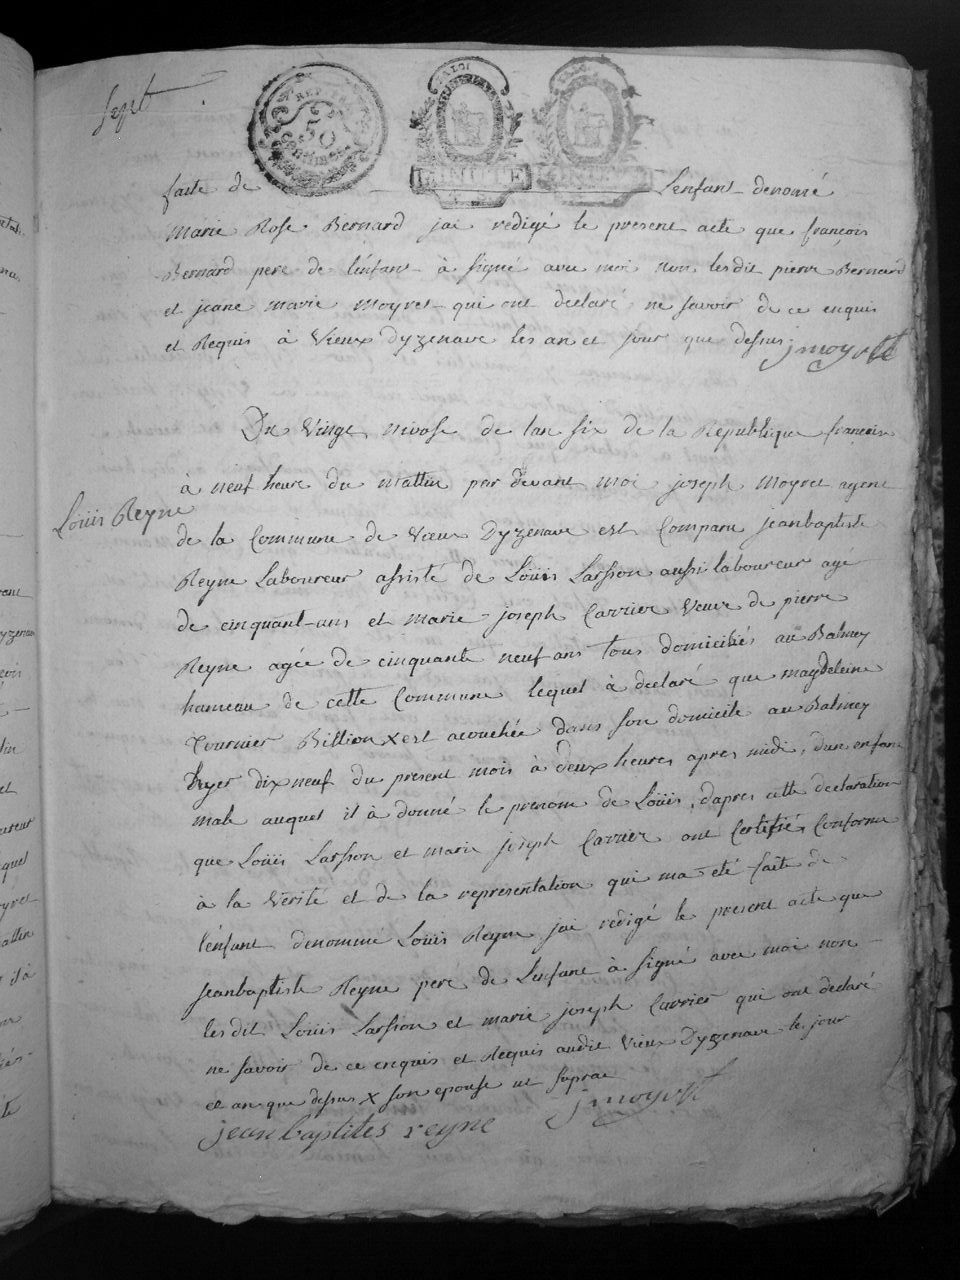 Sept
REP. FRA.
50
centimes
LA LOI
MINUTE
faite de Lenfant denomé
Marie Rose Bernard jai redigé le present acte que françois
Bernard pere de lénfant à signé avec moi non lesdit pierre Bernard
et jeane marie Moyret qui ont declaré ne savoir de ce enquis
et Requis à Vieux dyzenave les an et jour que desus jmoyret
Du Vingt nivose de lan six de la Republique francoise
à neuf heure du mattin par devant moi joseph Moyret agent
Louis Reyne
de la Commune de Vieux Dyzenave est Comparu jeanbaptiste
Reyne Laboureur assisté de Loüis Larsson aussi laboureur agé
de cinquant-ans et marie-joseph Carrier Veuve de pierre
Reyne agée de cinquante neuf ans tous domiciliés au Balmey
hameau de cette Commune lequel à declaré que magdeleine
Tournier Billion x est acouchée dans son domicile au Balmey
hyer dixneuf du present mois à deux heures apres midi, dun enfant
male auquel il à donné le prenom de Loüis, dapres cette declaration
que Loüis Larsson et marie joseph Carrier ont Certifié Conforme
à la Vérité et de la representation qui ma été faite de
lénfant denommé Loüis Reyne jai redigé le present acte que
jeanbaptiste Reyne pere de Lenfant à signé avec moi non
lesdit Loüis Larsson et marie joseph Carrier qui ont declaré
ne savoir de ce enquis et Requis audit Vieux Dyzenave le jour
et an que desus x son epouse ut suprae
jean baptites reyne jmoyret